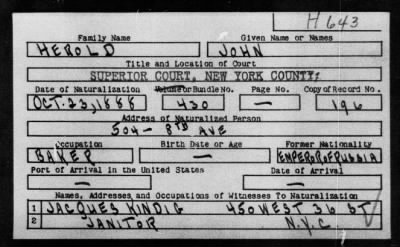 H 643
Family Name Given Name or Names
HEROLD JOHN
Title and Location of Court
SUPERIOR COURT, NEW YORK COUNTY;
Date of Naturalization Volume or Bundle No. Page No. Copy of Record No.
OCT. 23, 1888 430 — 196
Address of Naturalized Person
504 - 8TH AVE
Occupation Birth Date or Age Former Nationality
BAKER — EMPEROR OF RUSSIA
Port of Arrival in the United States Date of Arrival
— —
Names, Addresses, and Occupations of Witnesses To Naturalization
1 JACQUES KINDIG 450 WEST 36 ST
2 JANITOR N.Y.C.